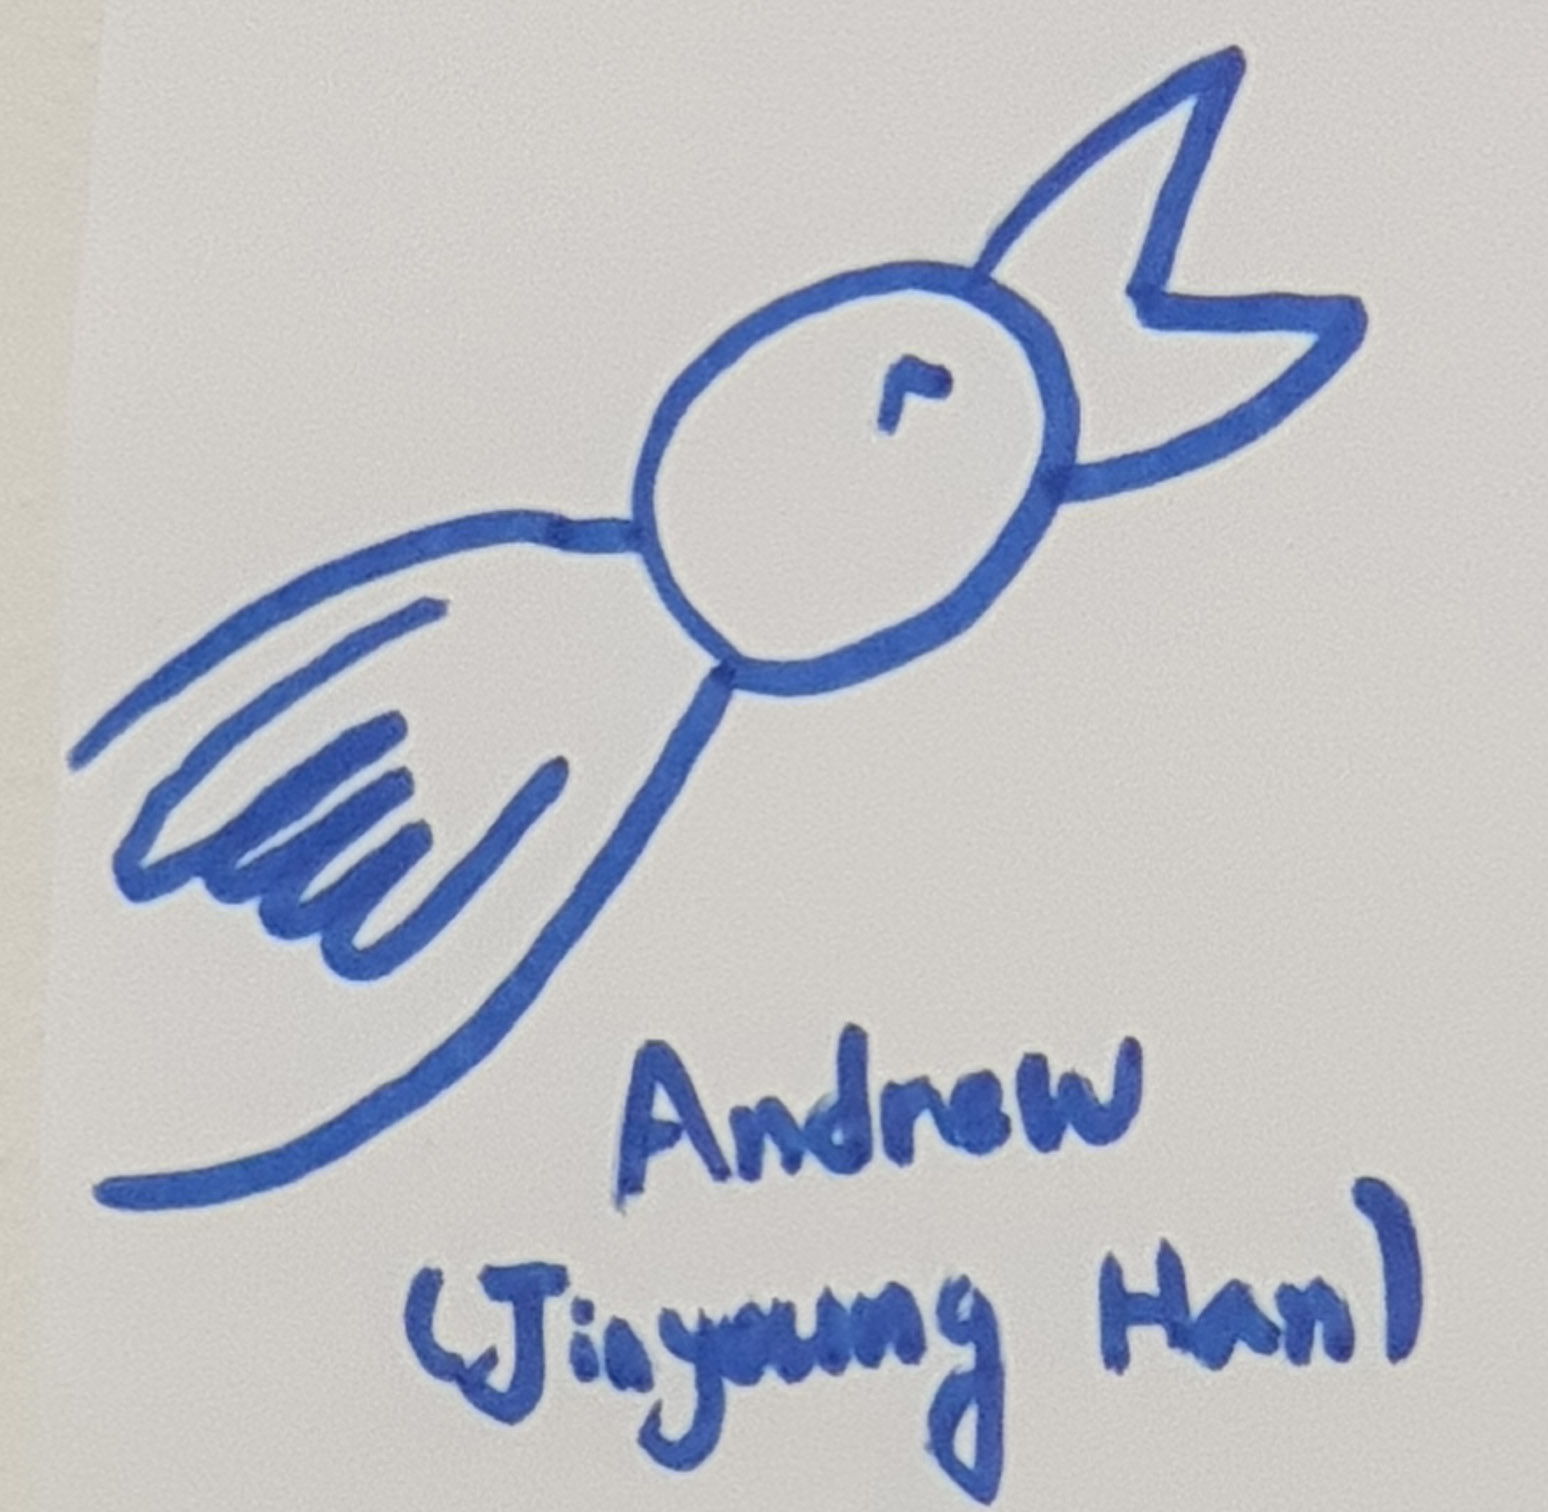 Andrew
(Jinyoung Han)